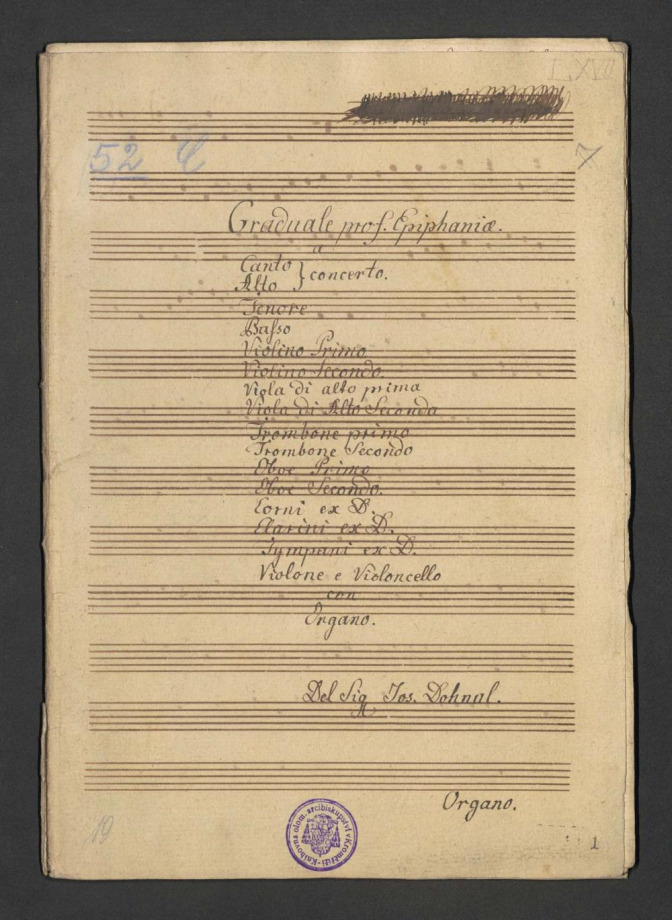 LXVII
52
7
Graduale prof. Epiphaniæ.
a
Canto } concerto.
Alto
Tenore
Basso
Violino Primo
Violino Secondo.
Viola di alto prima
Viola di Alto Seconda
Trombone primo
Trombone Secondo
Oboe Primo
Oboe Secondo.
Corni ex D.
Clarini ex D.
Tympani ex D.
Violone e Violoncello
con
Organo.
Del Sig Jos. Dohnal.
Organo.
Knihovna olom. arcibiskupství v Kroměříži
19
1